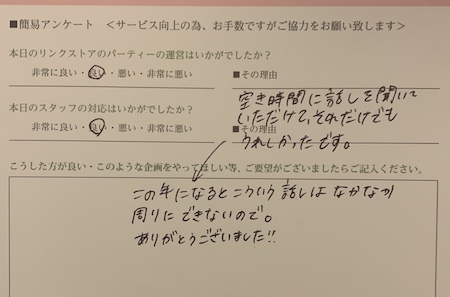 ■簡易アンケート ＜サービス向上の為、お手数ですがご協力をお願い致します＞
本日のリンクストアのパーティーの運営はいかがでしたか？
非常に良い・良い・悪い・非常に悪い
■その理由
空き時間に話しを聞いて
いただけて、それだけでも
うれしかったです。
本日のスタッフの対応はいかがでしたか？
非常に良い・良い・悪い・非常に悪い
■その理由
こうした方が良い・このような企画をやってほしい等、ご要望がございましたらご記入ください。
この年になるとこういう話しはなかなか
周りにできないので。
ありがとうございました!!